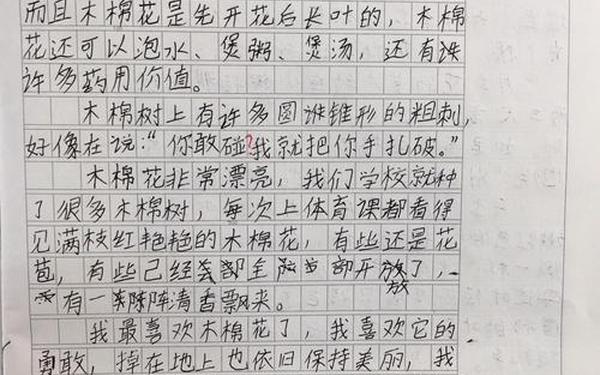 而且木棉花是先开花后长叶的，木棉
花还可以泡水、煲粥、煲汤，还有
许多药用价值。
木棉树上有许多圆锥形的粗刺，
好像在说：“你敢碰?我就把你手扎破。”
木棉花非常漂亮，我们学校就种
了很多木棉树，每次上体育课都看得
见满枝红艳艳的木棉花，有些还是花
苞，有些已经全部开放了，
有一阵阵清香飘来。
我最喜欢木棉花了，我喜欢它的
勇敢，掉在地上也依旧保持美丽，我